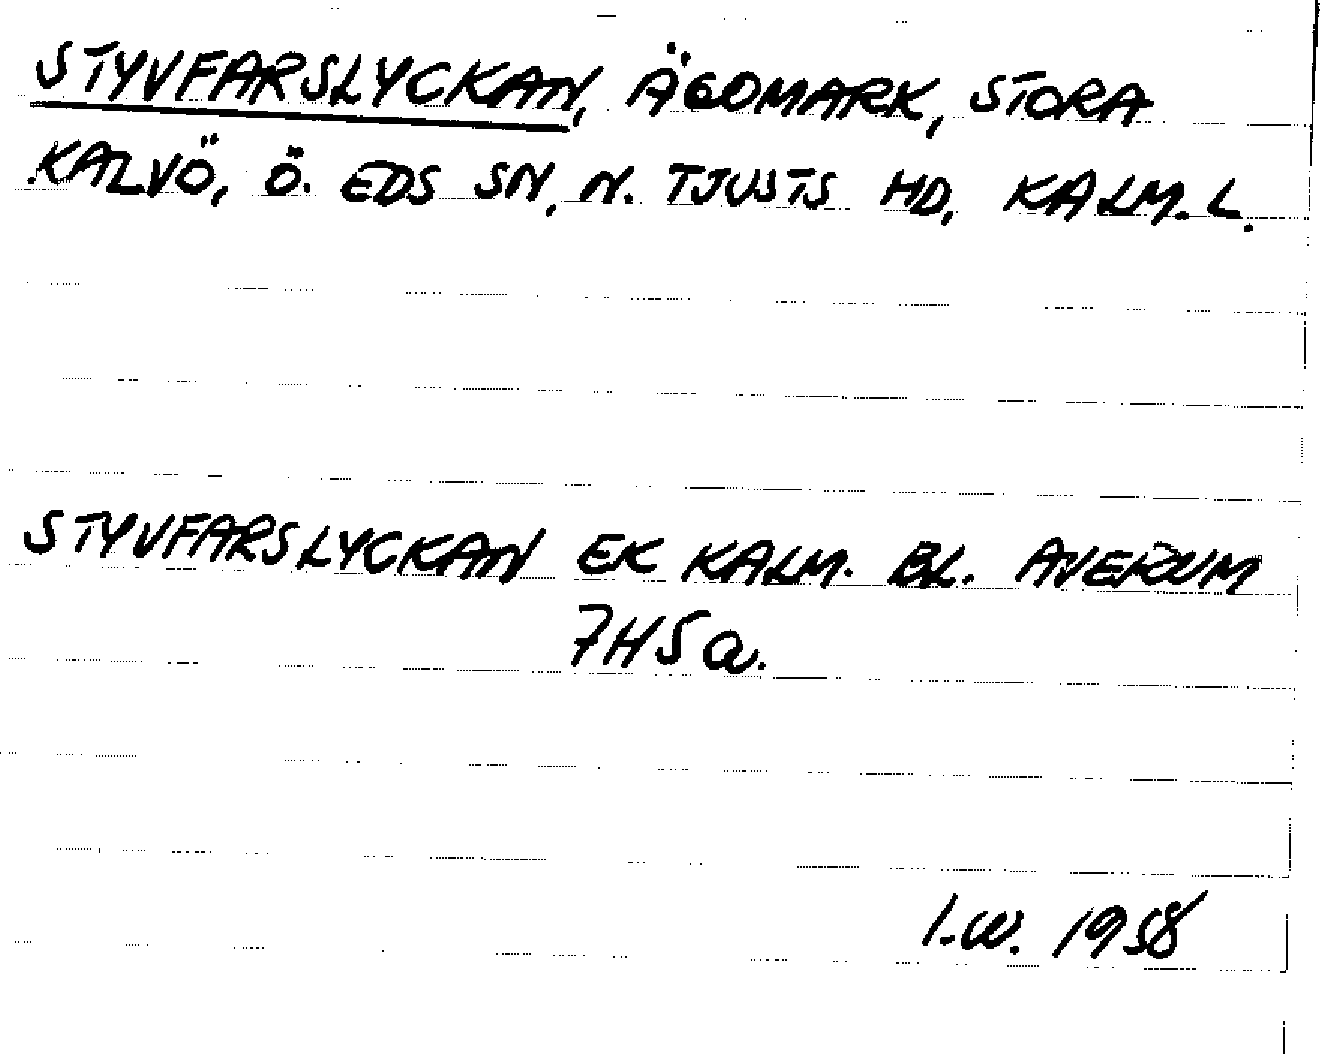 STYVFARSLYCKAN, ÄGOMARK, STORA
KALVÖ, Ö. EDS SN, N. TJUSTS HD, KALM. L.
STYVFARSLYCKAN EK KALM. BL. AVERUM
7H5a.
I.W. 1958